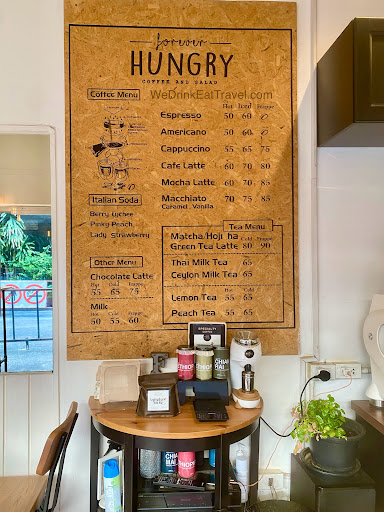 forever
HUNGRY
COFFEE AND SALAD
WeDrinkEatTravel.com
Coffee Menu
Hot Iced Frappe
Espresso 50 60
Americano 50 60
Cappuccino 55 65 75
Cafe Latte 60 70 80
Mocha Latte 60 70 85
Macchiato 70 75 85
Caramel, Vanilla
Italian Soda
Berry Lychee
Pinky Peach
Lady Strawberry
Tea Menu
Matcha/Hoji ha Cold Frappe
Green Tea Latte 80 90
Thai Milk Tea 65
Ceylon Milk Tea 65
Hot Cold
Lemon Tea 55 65
Peach Tea 55 65
Other Menu
Chocolate Latte
Hot Cold Frappe
55 65 75
Milk
Hot Cold Frappe
50 55 60
SPECIALTY
F
CHIANG
RAI